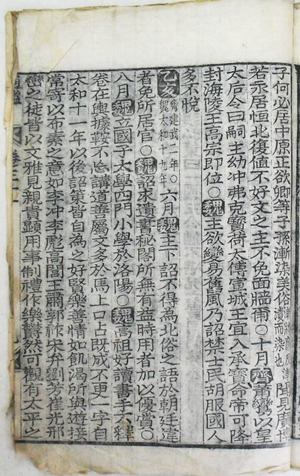 子何必居中原正欲卿等子孫漸染美俗聞見廣
若永居恒北復值不好文之主不免面牆爾○十月齊蕭鸞以皇
太后令曰嗣主幼冲弗克負荷太傅宣城王宜入承寶命帝可降
封海陵王高宗即位○魏主欲變易舊風乃詔禁士民胡服國人
多不悅
乙亥齊建武二年魏太和十九年○六月魏主下詔不得為北俗之語於朝廷違
者免所居官○魏詔求遺書秘閣所無有益時用者加以優賞○
八月魏立國子太學四門小學於洛陽○魏高祖好讀書手不釋
卷在輿據鞍不忘講道善屬文多於馬上口占既成不更一字自
太和十一年以後詔策皆自為之好賢樂善情如飢渴所與遊接
常寄以布素之意如李冲李彪高閭王肅郭祚宋弁劉芳崔光邢
巒之徒皆以文雅見親貴顯用事制禮作樂鬱然可觀有太平之